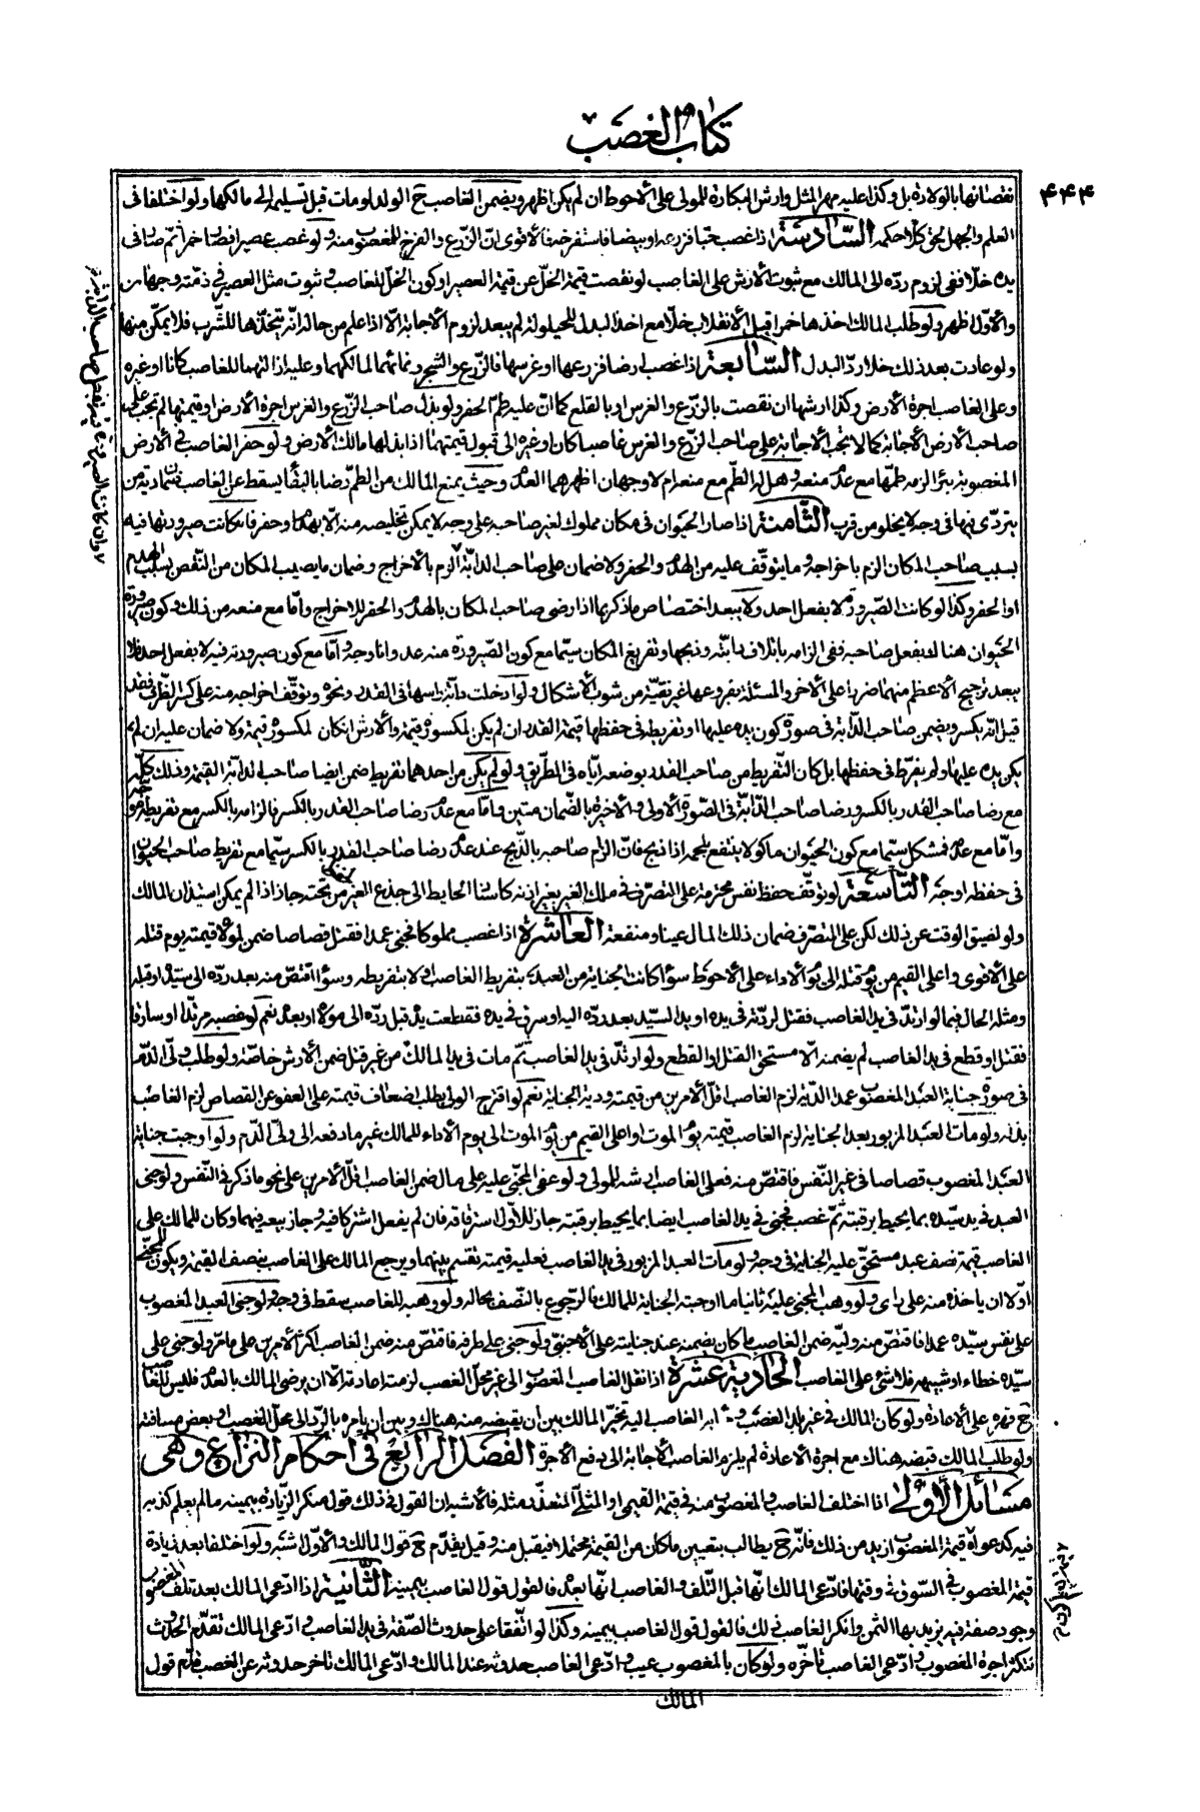 كتاب الغصب
۴۴۴
نقصانها بالولادة بل وكذا عليه مهر المثل وارش البكارة للمولى على الأحوط ان لم يكن اظهر ويضمن الغاصب ح الولد لو مات قبل تسليمه الى مالكها ولو اختلفا في
العلم والجهل لحق كلا حكمه السادسة اذا غصب حبا فزرعه او بيضا فاستفرخه فالأقوى ان الزرع والفرخ للمغصوب منه ولو غصب عصيرا فصار خمرا ثم صار في
يده خلا ففي لزوم رده الى المالك مع ثبوت الأرش على الغاصب لو نقصت قيمة الخل عن قيمة العصير او كون الخل للغاصب وثبوت مثل العصير في ذمته وجهان
والأول اظهر ولو طلب المالك اخذها خمرا قبل الأنقلاب خلا مع اخذ البدل للحيلولة لم يبعد لزوم الأجابة الا اذا علم من حاله انه يتخذها للشرب فلا يمكن منها
ولو عادت بعد ذلك خلا رد البدل السابعة اذا غصب ارضا فزرعها او غرسها فالزرع والشجر ونمائهما لمالكهما وعليه ازالتهما للغاصب كانا او غيره
وعلى الغاصب اجرة الأرض وكذا ارشها ان نقصت بالزرع والغرس او بالقلع كما ان عليه طم الحفر ولو بذل صاحب الزرع والغرس اجرة الأرض او قيمتها لم تجب على
صاحب الأرض الأجابة كما لا تجب الأجابة على صاحب الزرع والغرس غاصبا كان او غيره الى قبول قيمتهما اذا بذلها مالك الأرض ولو حفر الغاصب في الأرض
المغصوبة بئرا لزمه طمها مع عدم منعه وهل له الطم مع منعه ام لا وجهان اظهرهما العدم وحيث يمنع المالك من الطم رضا بالبقاء يسقط عن الغاصب ضمان دية من
يتردى فيها في وجه لا يخلو من قرب الثامنة اذا صار الحيوان في مكان مملوك لغير صاحبه على وجه لا يمكن تخليصه منه الا بهدم او حفر فان كانت صيرورتها فيه
بسبب صاحب المكان الزم باخراجه وما يتوقف عليه من الهدم والحفر ولا ضمان على صاحب الدابة الزم بالأخراج وضمان ما يصيب المكان من النقص بسبب الهدم
او الحفر وكذا لو كانت الصيرورة لا بفعل احد ولا يبعد اختصاص ما ذكر بما اذا رضى صاحب المكان بالهدم والحفر للاخراج واما مع منعه من ذلك وكون صيرورة
الحيوان هناك بفعل صاحبه ففي الزامه باتلاف دابته وذبحها وتفريغ المكان سيما مع كون الصيرورة منه عدوانا وجه واما مع كون صيرورته فيه لا بفعل احد فلا
يبعد ترجيح الأعظم منهما ضررا على الأخر والمسئلة بفروعها غير نقية من شوب الأشكال ولو ادخلت دابة راسها في القدر ونحوه وتوقف اخراجه منه على كسر الظرف فقد
قيل انه يكسر ويضمن صاحب الدابة في صورة كون يده عليها او تفريطه في حفظها قيمة القدر ان لم يكن لمكسوره قيمة والأرش ان كان لمكسوره قيمة ولا ضمان عليه ان لم
يكن يده عليها ولم يفرط في حفظها بل كان التفريط من صاحب القدر بوضعه اياه في الطريق ولو لم يكن من احدهما تفريط ضمن ايضا صاحب الدابة القيمة وذلك كله
مع رضا صاحب القدر بالكسر ورضا صاحب الدابة في الصورة الأولى والأخيرة بالضمان متين واما مع عدم رضا صاحب القدر بالكسر فالزامه بالكسر مع تفريطه موجه
واما مع عدمه فمشكل سيما مع كون الحيوان ماكولا ينتفع بلحمه اذا ذبح فان الزام صاحبه بالذبح عند عدم رضا صاحب القدر بالكسر سيما مع تفريط صاحب الحيوان
في حفظه اوجه التاسعة لو توقف حفظ نفس محترمة على التصرف في ملك الغير بغير اذنه كاسنا الحايط الى جذع الغير من تحته جاز اذا لم يمكن استيذان المالك
ولو لضيق الوقت عن ذلك لكن على المتصرف ضمان ذلك المال عينا ومنفعة العاشرة اذا غصب مملوكا فجنى عمدا فقتل قصاصا ضمن لمولاه قيمته يوم قتله
على الأقوى واعلى القيم من يوم قتله الى يوم الأداء على الأحوط سواء كانت الجناية من العبد بتفريط الغاصب او لا بتفريطه وسواء اقتص منه بعد رده الى سيده او قبله
ومثله الحال فيما لو ارتد في يد الغاصب فقتل لردته في يده او يد السيد بعد رده اليه او سرق في يده فقطعت يده قبل رده الى مولاه او بعده نعم لو غصبه مرتدا او سارقا
فقتل او قطع في يد الغاصب لم يضمنه الا مستحق القتل او القطع ولو ارتد في يد الغاصب ثم مات في يد المالك من غير قتل ضمن الأرش خاصة ولو طلب ولى الدم
في صورة جناية العبد المغصوب عمدا الدية لزم الغاصب اقل الأمرين من قيمته ودية الجناية نعم لو اقترح الولى بطلب اضعاف قيمته على العفو عن القصاص لزم الغاصب
بذله ولو مات العبد المزبور بعد الجناية لزم الغاصب قيمته يوم الموت او اعلى القيم من يوم الموت الى يوم الأداء للمالك غير ما دفعه الى ولى الدم ولو اوجبت جناية
العبد المغصوب قصاصا في غير النفس فاقتص منه فعلى الغاصب ارشه للمولى ولو عفى المجنى عليه على مال ضمن الغاصب اقل الأمرين على نحو ما ذكر في النفس ولو جنى
العبد في يد سيده بما يحيط برقبته ثم غصب فجنى في يد الغاصب ايضا بما يحيط برقبته جاز للأول استرقاقه فان لم يفعل اشتركا فيه وجاز بيعه فيهما وكان للمالك على
الغاصب قيمة نصف عبد مستحق عليه الجناية في وجه ولو مات العبد المزبور في يد الغاصب فعليه قيمته تقسم بينهما ويرجع المالك على الغاصب بنصف القيمة ويكون للمجنى
اولا ان ياخذه منه على راى ولو وهب المجنى عليه ثانيا ما اوجبته الجناية للمالك فالرجوع بالنصف بحاله ولو وهبه للغاصب سقط في وجه ولو جنى العبد المغصوب
على نفس سيده عمدا فاقتص منه وليه ضمن الغاصب ما كان يضمنه عند جنايته على الأجنبى ولو جنى على طرفه فاقتص منه ضمن الغاصب اكثر الأمرين على ما مر ولو جنى على
سيده خطاء او شبهه فلا شئ على الغاصب الحادية عشرة اذا نقل الغاصب المغصوب الى غير محل الغصب لزمته اعادته الا ان يرضى المالك بالعدم فليس للغاصب
ح قهره على الأعادة ولو كان المالك في غير بلد الغصب الغاصب اليه تخير المالك بين ان يقبضه منه هناك وبين ان يامره بالرد الى محل الغصب او بعض مسافته
ولو طلب المالك قبضه هناك مع اجرة الأعادة لم يلزم الغاصب الأجابة الى دفع الأجرة الفصل الرابع في احكام النزاع وهى
مسائل الأولى اذا اختلف الغاصب والمغصوب منه في قيمة القيمى او المثلى المتعذر مثله فالأشبه ان القول في ذلك قول منكر الزيادة بيمينه ما لم يعلم كذبه
فيه كدعواه قيمة المغصوب ازيد من ذلك فانه ح يطالب بتعيين ما كان من القيمة محتملا فيقبل منه وقيل يقدم ح قول المالك والأول اشبه ولو اختلفا بعد زيادة
قيمة المغصوب في السوق في وقتها فادعى المالك انها قبل التلف والغاصب انها بعده فالقول قول الغاصب بيمينه الثانية اذا ادعى المالك بعد تلف المغصوب
وجود صفة فيه يزيد بها الثمن وانكر الغاصب ذلك فالقول قول الغاصب بيمينه وكذا لو اتفقا على حدوث الصفة في يد الغاصب وادعى المالك تقدم الحدوث
لتكثر اجرة المغصوب وادعى الغاصب تأخره ولو كان بالمغصوب عيب وادعى الغاصب حدوثه عند المالك وادعى المالك تاخر حدوثه عن الغصب قدم قول
المالك